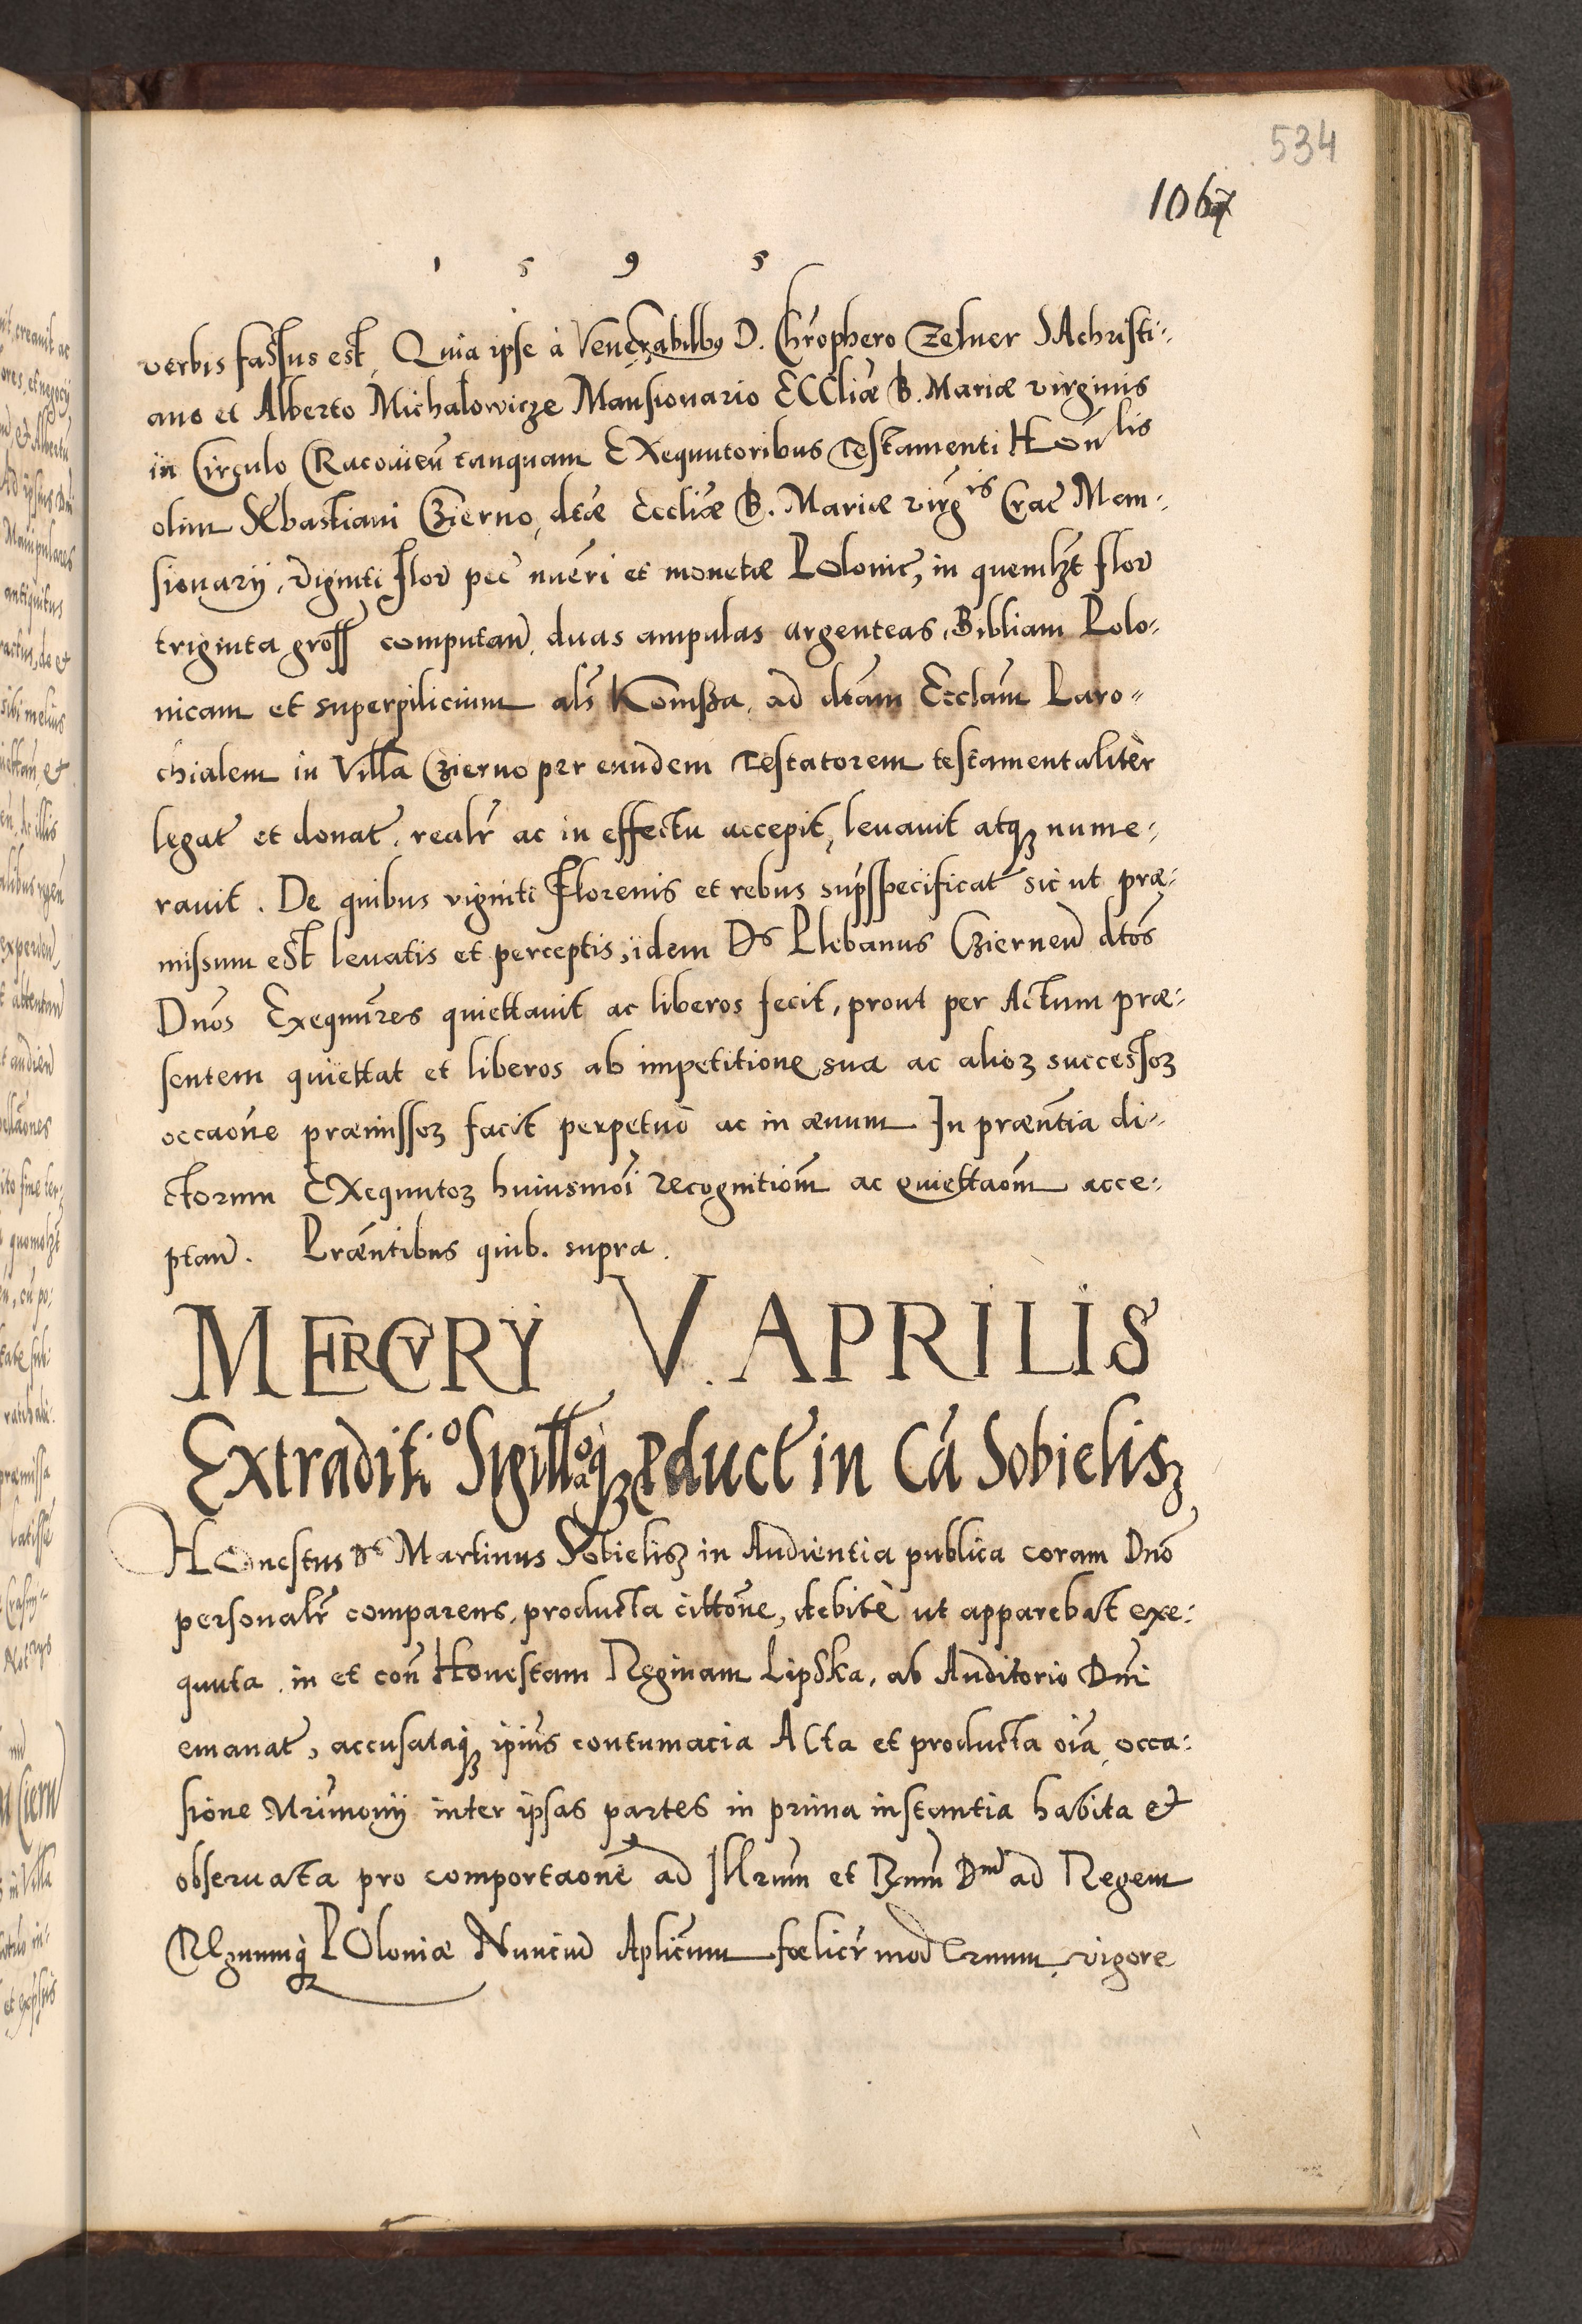 534
1067
1 5 9 5
verbis fassus est, Quia ipse à Venerabilbus D. Chrõphero Zelner SAchristi-
ano et Alberto Michalowicze Mansionario ECCliæ B. Mariæ virginis
in Circulo CRacouieñ tanquam EXequutoribus Testamenti Honlis
olim SEbastiani Czierno, dcæ Eccliæ B. Mariæ virgis Crac̃ Mem-
sionarij, Viginti flor̃ pec̃ nuẽri et monetæ POlonic̃, in quemlzt flor̃
triginta gross̃ computañ, duas ampulas argenteas, Bibliam Polo-
nicam et superpilicium als̃ Komsza, ad dcãm Ecclãm Paro-
chialem in Villa Czierno per eundem Testatorem testamentaliter
legat̃ et donat̃, realr̃ ac in effectu accepit, leuauit atqz nume-
rauit. De quibus viginti Florenis et rebus sup̃specificat̃ sic ut præ-
missum est leuatis et perceptis, idem Ds Plebanus Cziernen̄ dtos̃
Dnos̃ Exequũres quiettauit ac liberos fecit, prout per Actum præ-
sentem quiettat et liberos ab impetitione sua ac alioz successoz
occaoñe præmissoz facit perpetuò ac in æuum In præñtia di-
ctorum EXequutoz huiusmoi recognitioñ ac quiettaoñ acce-
ptañ. Præñtibus quib. supra.
MERCVRY V. APRILIS
Extraditio Sigilloqz educt in Cã Sobielisz
HOnestus Ds Martinus SObielisz in Audientia publica coram Dnõ
personalr̃ comparens, producta cittoñe, debitè ut apparebat exe-
quuta, in et con̄ Honestam Reginam Lipska, ab Auditorio Dni
emanat̃, accusataqz ipius contumacia Acta et producta oia occa-
sione Mrimonij inter ipsas partes in prima instantia habita et
obseruata pro comportaone ad Illrum et Rmm Dnũ ad Regem
REgnumqz POloniæ Nuncium Aplicum fœlicr̃ modErnum, vigore